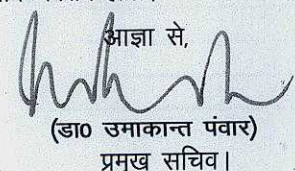 आज्ञा से,
(डा० उमाकान्त पंवार)
प्रमुख सचिव।